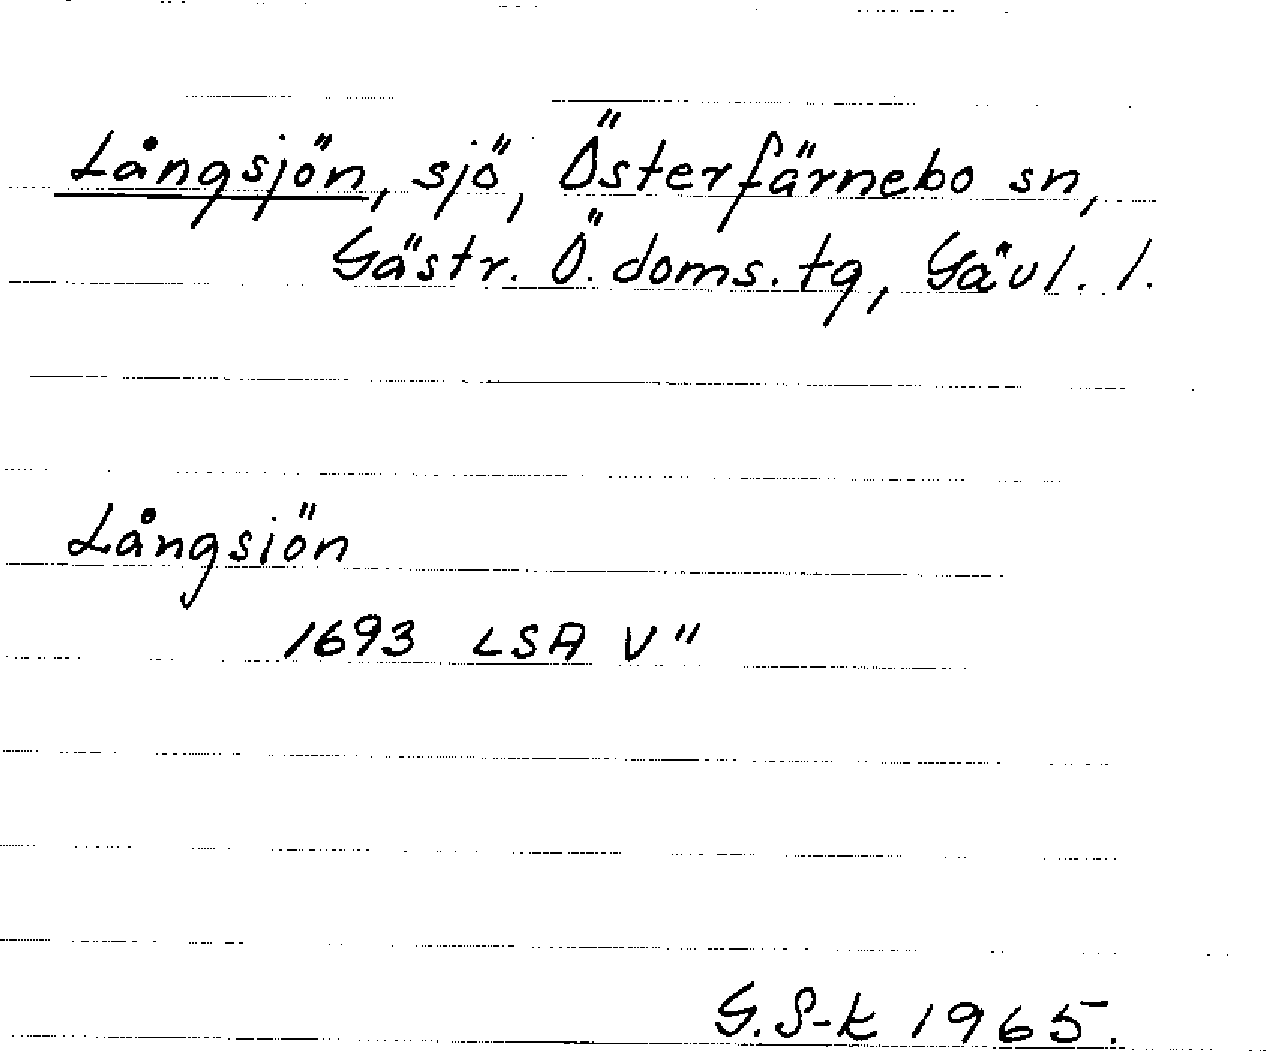 Långsjön, sjö, Österfärnebo sn,
Gästr. Ö. doms. tg, Gävl. l.
Långsiön
1693 LSA V"
G. S-k 1965.